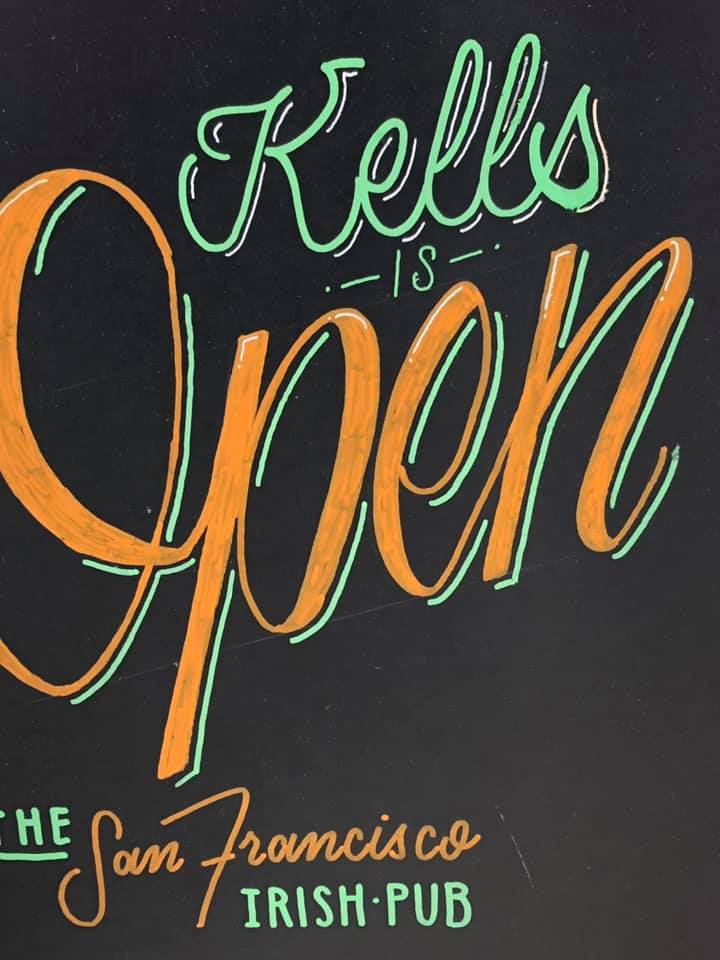 Kells
IS
Open
THE San Francisco
IRISH·PUB